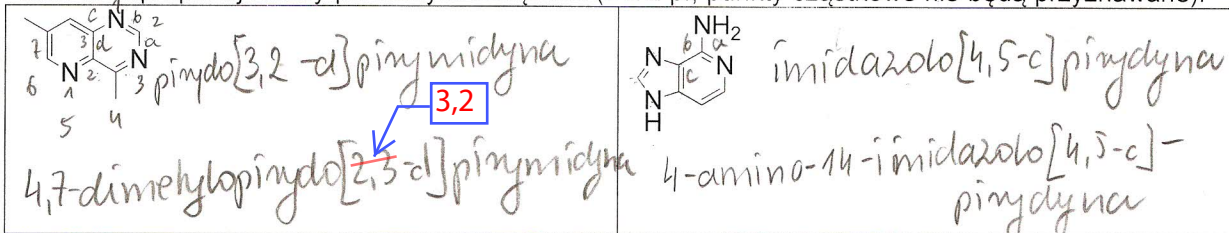 c N b 2
7 3 d a
6 N 2 N 3
1
5 4
pirydo[3,2-d]pirymidyna
3,2
4,7-dimetylopirydo[2,3-d]pirymidyna
NH2
b a
N N
c
N
H
imidazolo[4,5-c]pirydyna
4-amino-1H-imidazolo[4,5-c]-
pirydyna